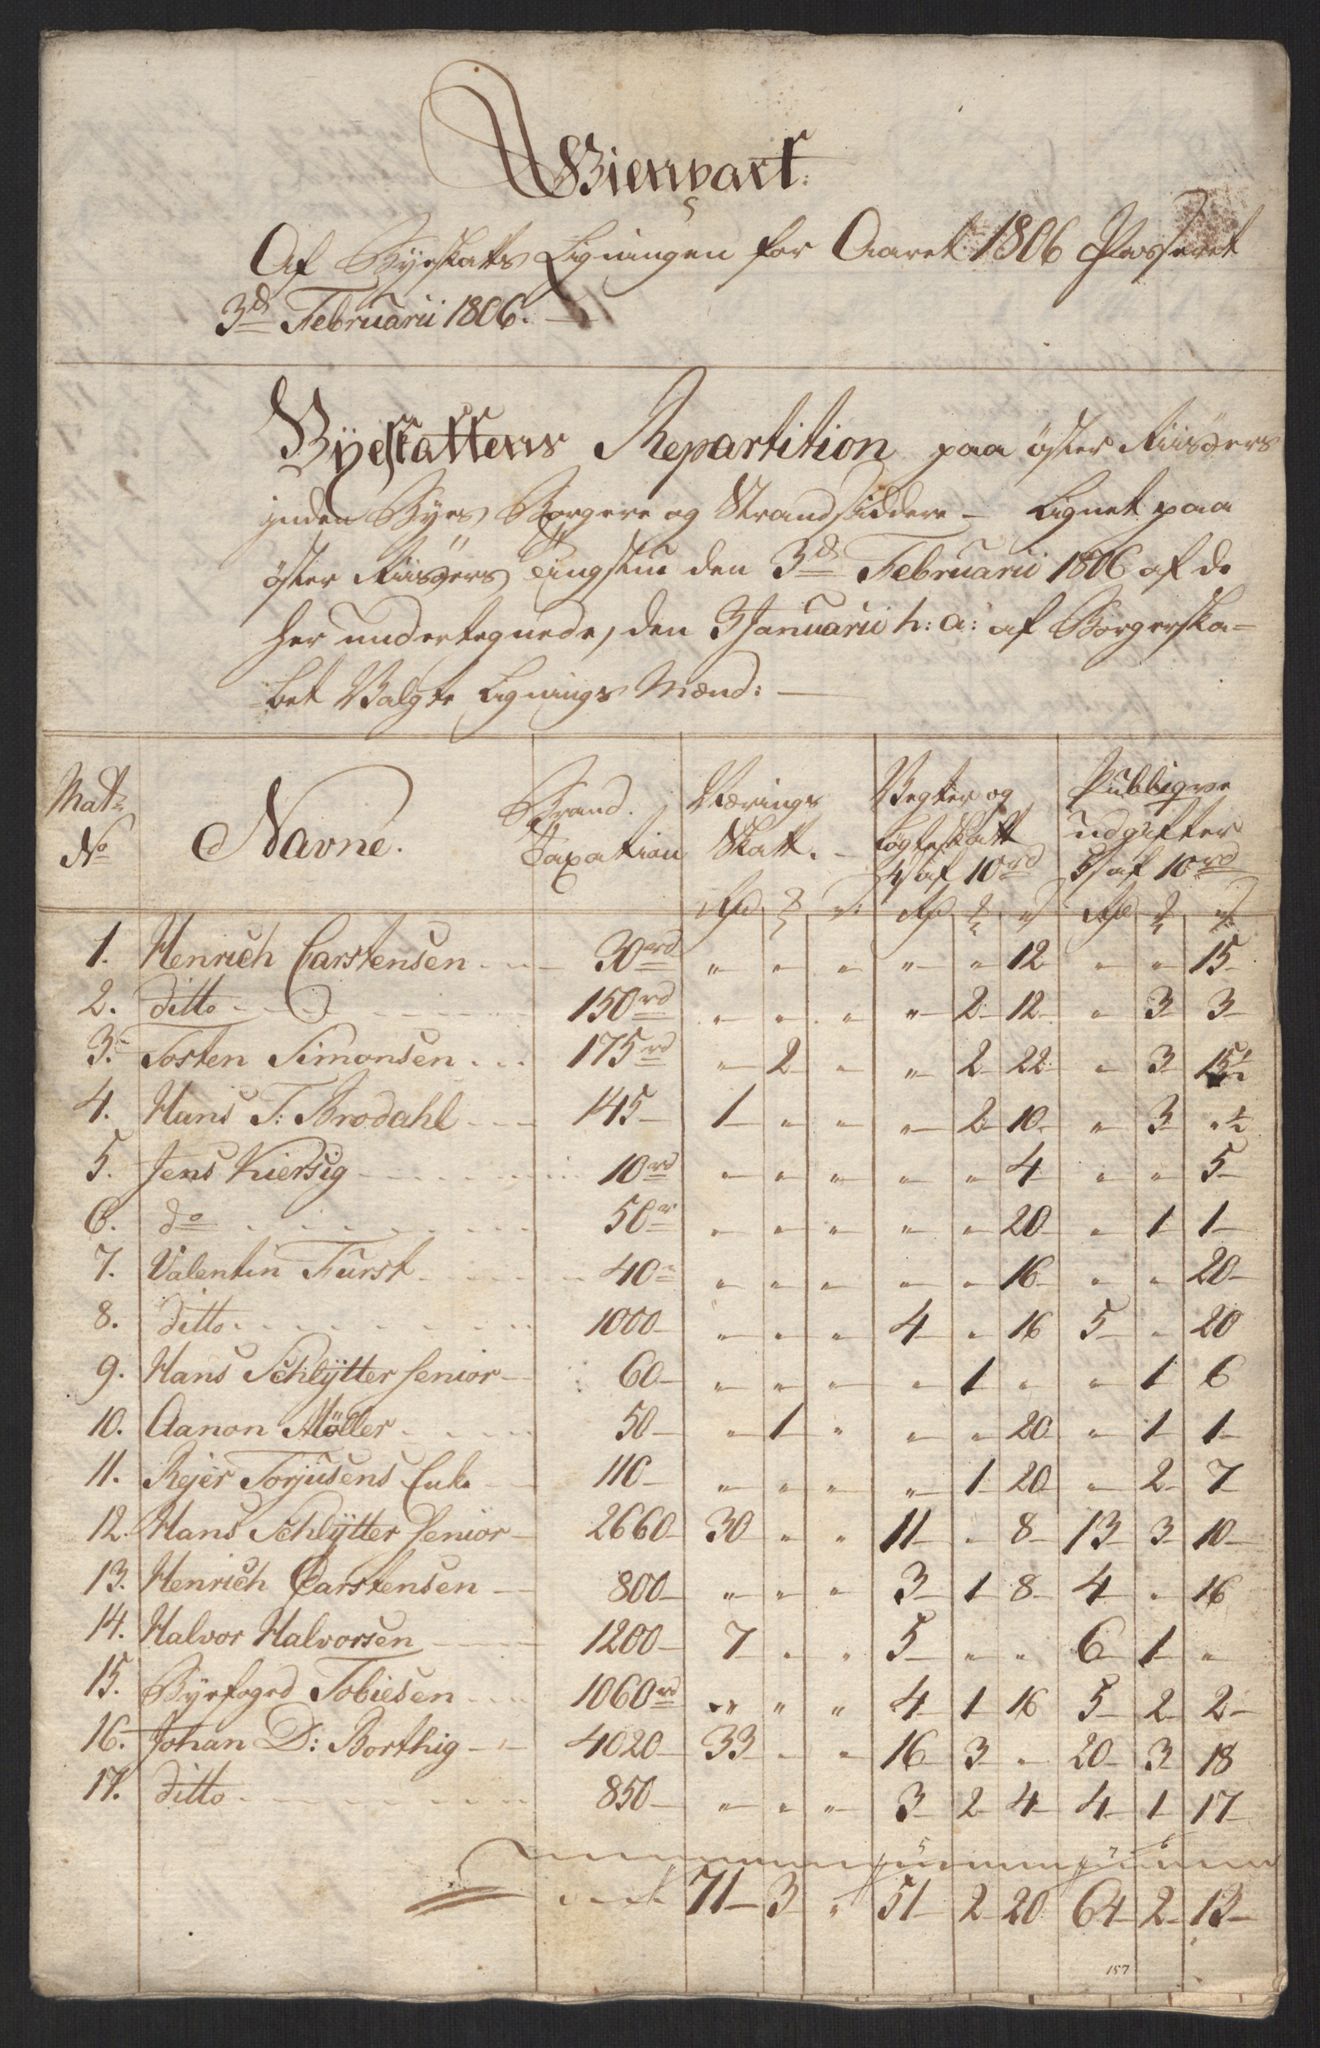 Gienpart:
Af Byeskatts Ligningen for Aaret 1806 Passeret
3d Februarii 1806.
Byeskattens Repartition paa öster Riisöers
inden Byes Borgere og Strandsiddere – Lignet paa
öster Riisöers Tingstue den 3d Februarii 1806 af de
her undertegnede, den 3 Januarii h: a: af Borgerska=
=bet Valgte Ligningsmænd:
Mat: No Navne. Brand Taxation Nærings Skatt. Vegter og Løgteskatt 4 s af 10 rd Publiqve udgifter 5 s af 10 rd
Rd ß Rd ß Rd ß
1. Henrich Carstensen 30 rd " " " " " 12 " " 15
2. ditto 150 rd " " " " 2 12 " 3 3
3. Tosten Simonsen 175 rd " 2 " " 2 22 " 3 15½
4. Hans T: Brodahl 145 1 " " " 2 10 " 3 " ½
5. Jens Kiersig 10 rd " " " " " 4 " " 5
6. do 50 r " " " " " 20 " 1 1
7. Valentin Fürst 40 " " " " " 16 " " 20
8. ditto 1000 " " " 4 " 16 5 " 20
9. Hans Schlÿtter senior 60 " " " " 1 " " 1 6
10. Aanon Möller 50 " 1 " " " 20 " 1 1
11. Rejer Torjusens Enke 110 " " " " 1 20 " 2 7
12. Hans Schlÿtter senior 2660 30 " " 11 " 8 13 3 10
13. Henrich Carstensen 800 " " " 3 1 8 4 " 16
14. Halvor Halvorsen 1200 7 " " 5 " " 6 1 "
15. Byefoged Tobiesen 1060 rd " " " 4 1 16 5 2 2
16. Johan D: Borthig 4020 33 " " 16 3 " 20 3 18
17. ditto 850 " " " 3 2 4 4 1 17
71 3 " 51 2 20 64 2 13
157